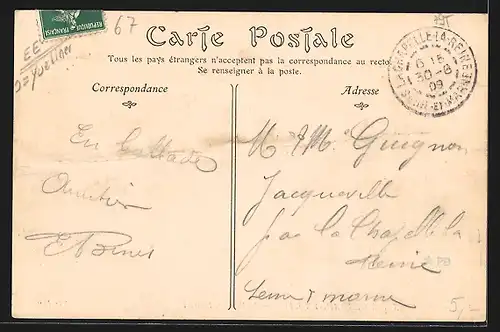 67
Carte Postale
Tous les pays étrangers n'acceptent pas la correspondance au recto
Se renseigner à la poste.
Correspondance
Adresse
LA CHAPELLE-LA-REINE
6 15
30 -8
09
SEINE-ET-MARNE
En
Amitiés
M & M. Guignon
Jacqueville
par la Chapelle la
Reine
Seine & marne
5,-